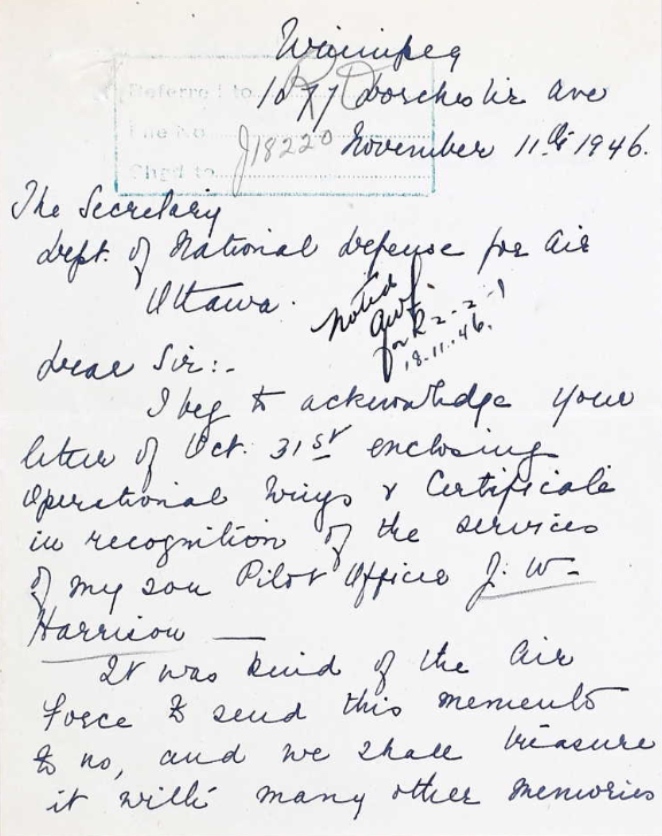 Winnipeg
1077 Dorchester Ave
Referred to
File No. J18220
Chgd to
November 11th 1946.
The Secretary
Dept. of National Defense for Air
Ottawa.
Noted
for R2-2-1
18.11.46.
Dear Sir:-
I beg to acknowledge your
letter of Oct. 31st enclosing
Operational Wings & Certificate
in recognition of the services
of my son Pilot Officer J. W-
Harrison —
It was kind of the Air
Force to send this memento
to us, and we shall treasure
it with many other memories